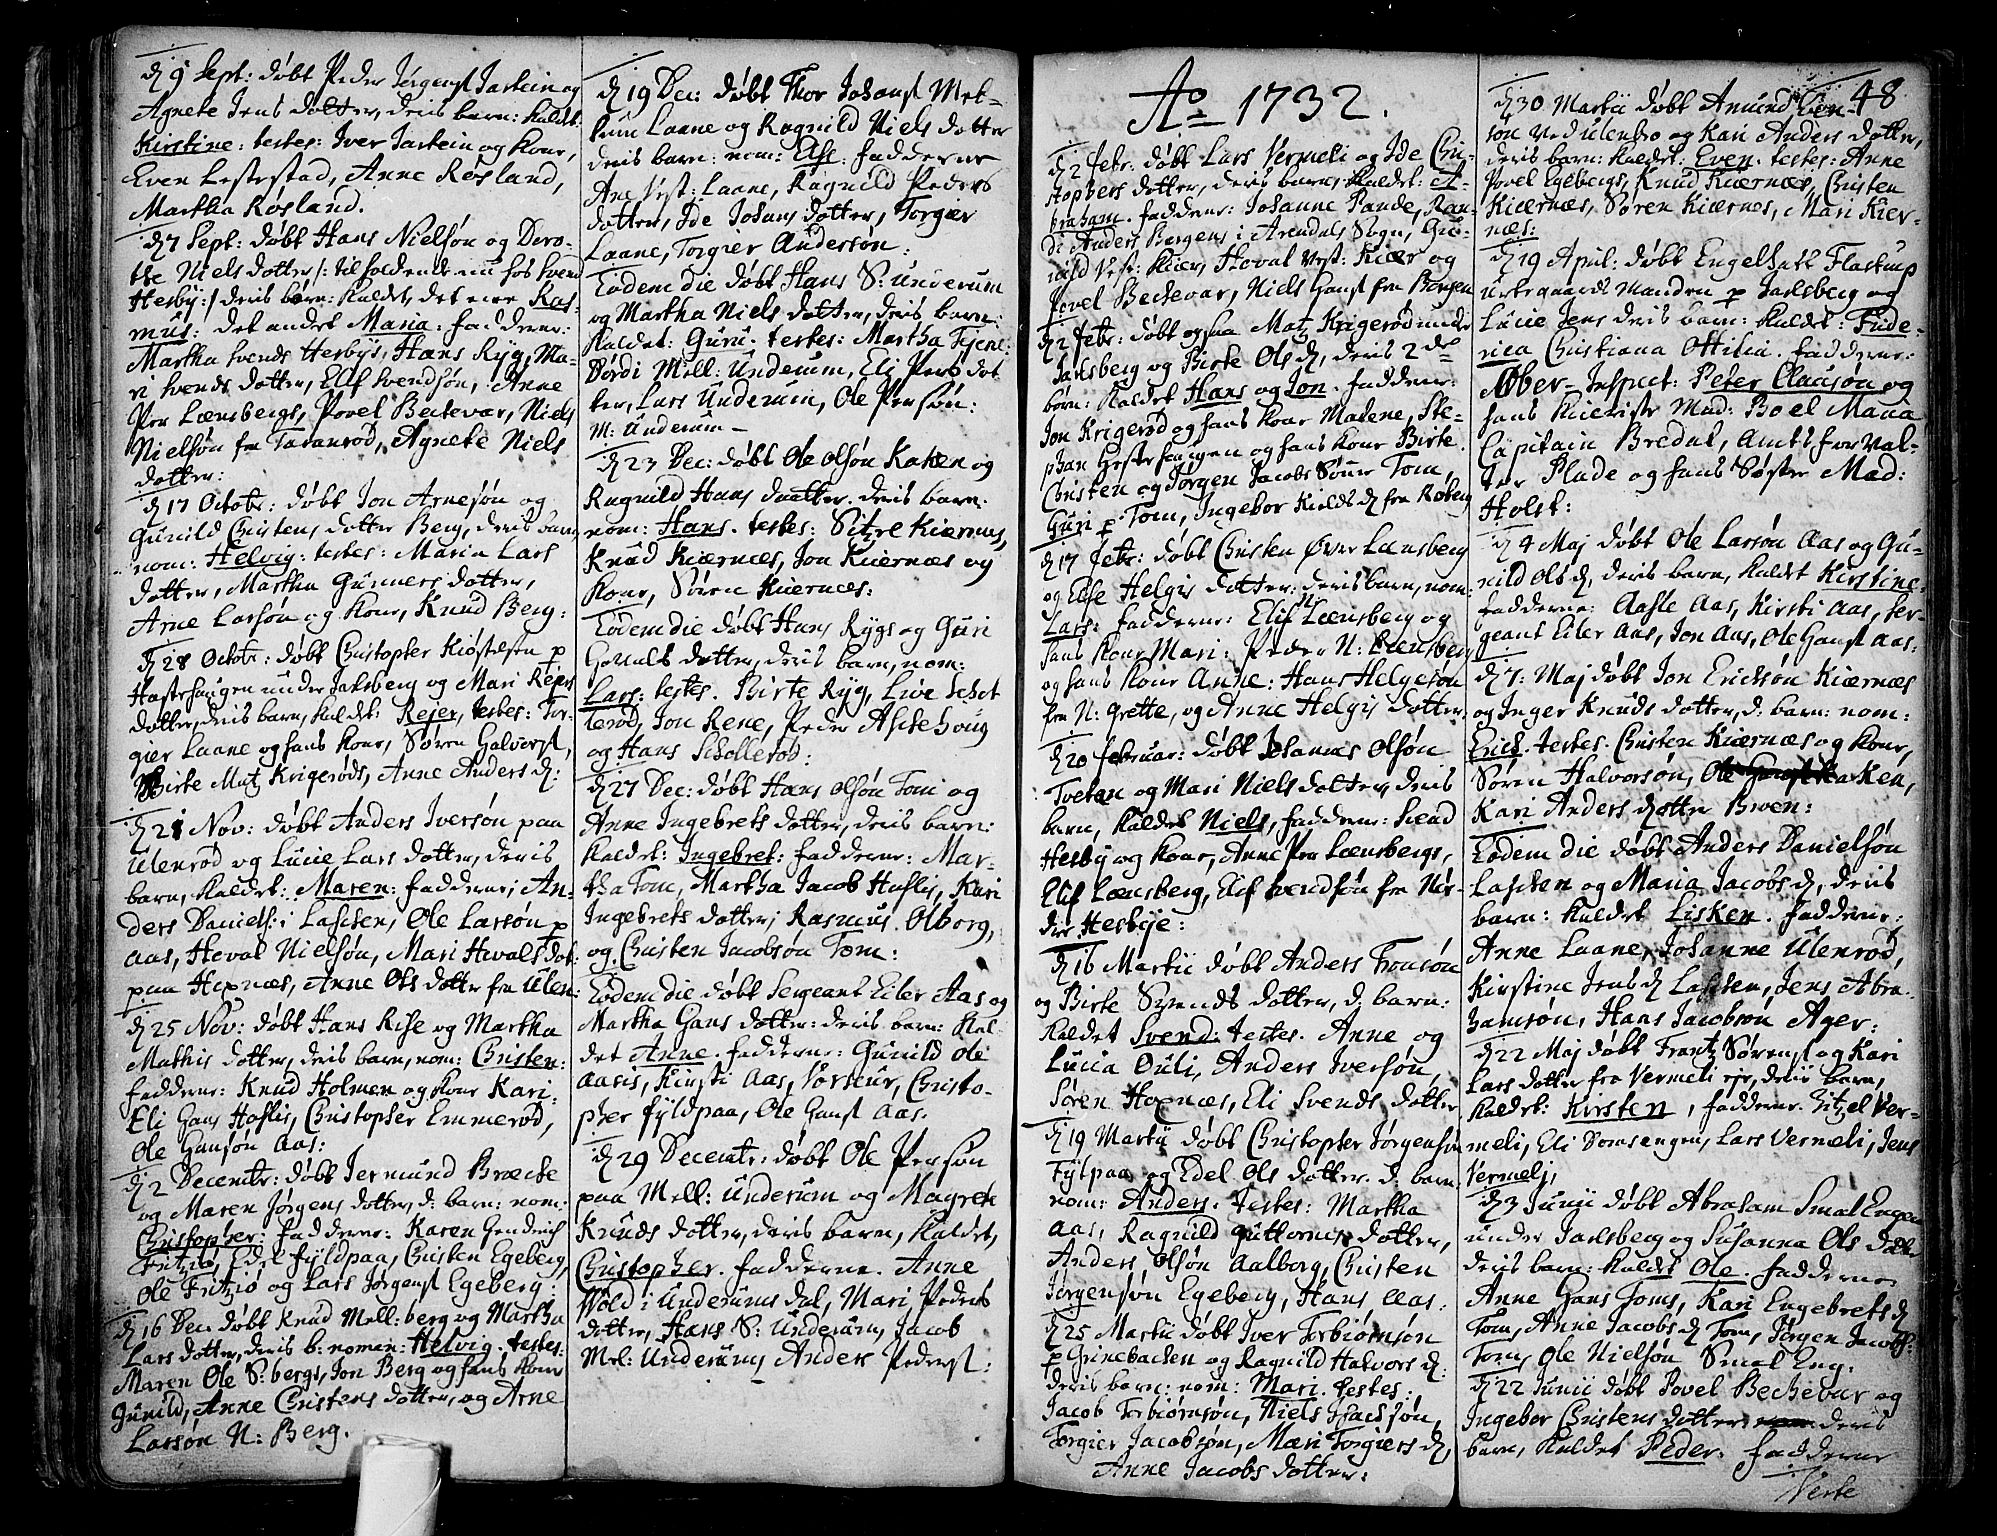 d 9 Sept: døbt Peder Jørgens Jartein og
Agnete Jens dotter, deris barn: kaldet:
Kirstine: testes: Iver Jartein og Kone,
Even Lestestad, Anne Røsland,
Martha Røsland.
d 7 Sept: døbt Hans Nielsøn og Doro-
the Niels dotter /: tilholdende nu hos Svend
Hesby :/ deris børn: kaldet, det eene Ras-
mus: det andet Maria: fadderne:
Martha Svends Hesbys, Hans Ryg, Ma-
ri Svends dotter, Elif Svendsøn, Anne
Per Lænsbergs, Povel Beckevar, Niels
Nielsøn fra Tadanrød, Agnete Niels
dotter:
d 17 Octobr: døbt Jon Arnesøn og
Gunild Christens dotter Berg, deris barn
nom: Helvig: testes: Maria Lars
dotter, Martha Gunners dotter,
Arne Larsøn og Kone, Knud Berg:
d 28 Octobr: døbt Christopher Kiøstelsen p
Hestehaugen under Jarlsberg og Mari Rejers
dotter, deris barn, kaldet: Rejer, testes: Tor-
gier Laane og hans Kone, Søren Halvorst,
Birte Matz Krigerøds, Anne Anders d:
d 21 Nov: døbt Anders Iversøn paa
Ulenrød og Lucie Lars dotter, deris
barn, kaldet: Maren: fadderne: An-
ders Daniels: i Lascken, Ole Larsøn p
Aas, Heval Nielsøn, Mari Hevals dot:
paa Hexnæs, Anne Ols dotter fra Ulen:
d 25 Nov: døbt Hans Rise og Martha
Mathis dotter, deris barn, nom: Christen:
fadderne: Knud Holmen og Kone Kari,
Eli Hans Hoflis, Christopher Emmerød,
Ole Hansøn Aas:
d 2 Decembr: døbt Jermund Brecke
og Maren Jørgens dotter, d: barn: nom:
Christopher: fadderne: Karen Hendrich
Fritziø, Edel Fyldpaa, Christen Egeberg,
Ole Fritziø og Lars Jørgenst Egeberg:
d 16 Dec: døbt Knud Mell: berg og Martha
Lars dotter, deris b: nomen: Helvig. testes:
Maren Ole S: bergs, Jon Berg og hans Kone
Gunild, Anne Christens dotter, og Arne
Larsøn N: Berg.
d 19 Dec: døbt Thor Johanst Mel-
lum Laane og Ragnild Niels dotter
deris barn: nom: Ase: fadderne
Ane Vest: Laane, Ragnild Peders
dotter, Ide Johans dotter, Torgier
Laane, Torgier Andersøn:
Eodem die døbt Hans S: Underum
og Martha Niels dotter, deris barn:
kaldet: Guru. testes: Martha Fejne:
Dørdi Mell: Underum, Eli Pers dot
ter, Lars Underum, Ole Persøn:
M: Underum -
d 23 Dec: døbt Ole Olsøn Kaken og
Ragnild Hans daatter. deris barn.
nom: Hans. testes: Sitzre Kiernæs,
Knud Kiærnæs, Jon Kiærnæs og
Kone, Søren Kiærnes:
Eodem die døbt Hans Rygs og Guri
Hovals dotter, deris barn, nom:
Lars: testes. Birte Ryg, Live Schol
lerød, Jon Rene, Peder Askehoug
og Hans Schollerød:
d 27 Dec: døbt Hans Olsøn Tom og
Anne Ingebrets dotter, deris barn:
kaldet: Ingebret: fadderne: Mar-
tha Tom, Martha Jacob Huflis, Kari
Ingebrets dotter, Rasmus Olborg,
og Christen Jacobsøn Tom:
Eodem die døbt Sergeant Eiler Aas og
Martha Hans dotter: deris barn: kal-
det Anne. fadderne: Gunild Ole
Aasis, Kirsti Aas, Vorseur, Christo-
pher Fyldpaa, Ole Hanst Aas.
d 29 Decembr: døbt Ole Persøn
paa Mell: Underum og Magrete
Knuds dotter, deris barn, kaldet,
Christopher. fadderne. Anne
Wold i Underums dal, Mari Peders
dotter, Hans S: Underum, Jacob
Mel: Underum, Anders Pederst:
Ao 1732.
d 2 Febr: døbt Lars Vermeli og Ide Chri-
stophers dotter, deris barn, kaldet: A-
braham. fadderne: Johanne Pande, Ran-
di Anders Bergens i Arendals Sogn, Gu-
nild Vest: Kiær, Hoval Vest: Kiær og
Povel Beckevar, Niels Hanst fra Borgen
d 2 Febr: døbt ogsaa Matz Krigerød under
Jarlsberg og Birte Ols d, deris 2de
børn: kaldet Hans og Jon. fadderne:
Jon Krigerød og hans Kone Malene, Ste-
phan Hestehaugen og hans Kone Birte.
Christen og Jørgen Jacobs Sønner Tom,
Guri p. Tom, Ingebor Kields d fra Røberg
d 17 Febr: døbt Christen Øver Lænsberg
og Else Helgis dotter: deris barn, nom:
Lars: fadderne: Elif Lænsberg og
hans Kone Mari: Peder N: Lænsberg
og hans Kone Anne: Hans Helgesøn
fra N: Grette, og Anne Helgis dotter.
d 20 Februar: døbt Johannes Olsøn
Tvetan og Mari Niels dotter, deris
barn, kaldet Niels, fadderne: Svend
Hesby og Kone, Anne Per Lænsbergs,
Elif Lænsberg, Elif Svendsøn fra Ner-
dre Hesbye:
d 16 Martii døbt Anders Tronsøn
og Birte Svends dotter, d. barn:
kaldet Svend: testes. Anne og
Lucia Ouli, Anders Iversøn,
Søren Hoxnæs, Eli Svends dotter
d 19 Martij døbt Christopher Jørgensøn
Fylpaa og Edel Ols dotter. d. barn
nom: Anders. testes: Martha
Aas, Ragnild Guttormis dotter,
Anders Olsøn Aalborg, Christen
Jørgensøn Egeberg, Hans Aas:
d 25 Martii døbt Iver Torbiørnsøn
p Grinebacken og Ragnild Halvors d:
deris barn: nom: Mari. testes:
Jacob Torbiørnsøn, Niels Isachsøn,
Torgier Jacobsøn, Mari Torgiers d,
Anne Jacobs dotter:
48
d 30 Martii døbt Amund Een-
søn ved Ulenbro og Kari Anders dotter,
deris barn: kaldet: Even. testes: Anne
Povel Egebergs, Knud Kiærnes, Christen
Kiærnes, Søren Kiærnes, Mari Kier-
næs:
d 19 April: døbt Engelhatt Flastrup
Urtegaards Manden p Jarlsberg og
Lucie Jens deris barn: kaldet: Fride-
rica Christiana Ottilia. fadderne:
Ober-Inspect: Peter Clausøn og
hans Kiæriste Mad: Boel Maria
Capitain Bredal, Amts forval-
ter Plade og hans Søster Mad:
Holst:
d 4 Maj døbt Ole Larsøn Aas og Gu-
nild Ols d, deris barn, kaldet Kirstine.
fadderne: Aasle Aas, Kirsti Aas, Ser-
geant Eiler Aas, Jon Aas, Ole Hanst Aas:
d 7: Maj døbt Jon Ericksøn Kiærnæs
og Inger Knuds dotter, d: barn: nom:
Erick. testes. Christen Kiærnæs og Kone,
Søren Halvorsøn, Ole Kaken,
Kari Anders dotter Bwen:
Eodem die døbt Anders Danielsøn
Lascken og Maria Jacobs d, deris
barn: kaldet Lisken. fadderne:
Anne Laane, Johanne Ulenrød,
Kirstine Jens d Lascken, Jens Abra-
hamsøn, Hans Jacobsøn Ager:
d 22 Maj døbt Frantz Sørenst og Kari
Lars dotter fra Vermeli eje, deris barn,
kaldet: Kirsten, fadderne. Sitzel Ver-
meli, Eli Domsengen, Lars Vermeli, Jens
Vermeli,
d 3 Junii døbt Abraham Smal Engen
under Jarlsberg og Susanna Ols dotter
deris barn: kaldet Ole. fadderne
Anne Hans Toms, Kari Engebrets d
Tom, Anne Jacobs d Tom, Jørgen Jacobst:
Tom, Ole Nielsøn Smal Eng:
d 22 Junii døbt Povel Beckevar og
Ingebor Christens dotter, deris
barn, kaldet Peder: fadderne
Verte